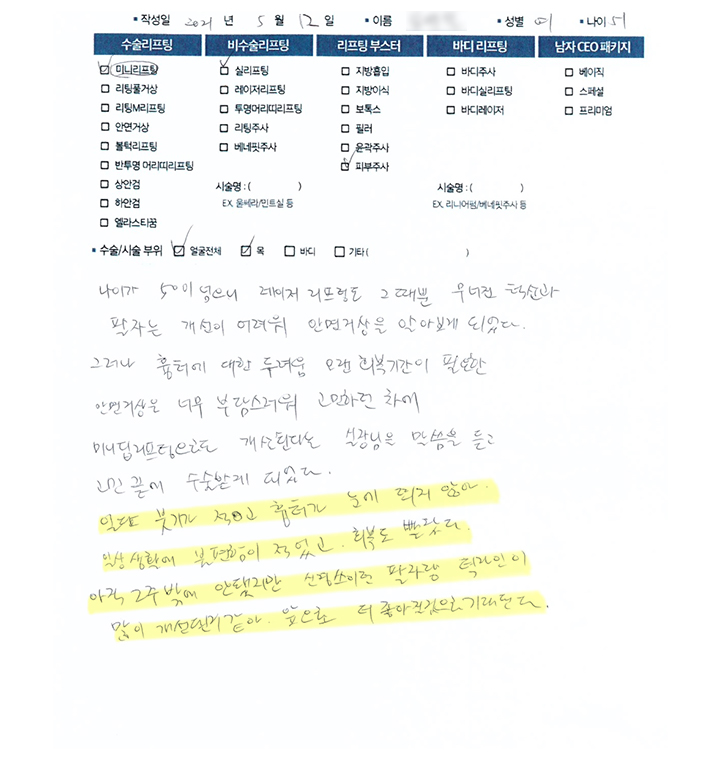 • 작성일 2021 년 5 월 12 일 • 이름 • 성별 여 • 나이 51
수술리프팅 비수술리프팅 리프팅 부스터 바디 리프팅 남자 CEO 패키지
미니리프팅 실리프팅 지방흡입 바디주사 베이직
리팅풀거상 레이저리프팅 지방이식 바디실리프팅 스페셜
리팅M리프팅 투명머리띠리프팅 보톡스 바디레이저 프리미엄
안면거상 리팅주사 필러
볼턱리프팅 베네핏주사 윤곽주사
반투명 머리띠리프팅 피부주사
상안검 시술명 : ( ) 시술명 : ( )
하안검 EX. 울쎄라/민트실 등 EX. 리니어펌/베네핏주사 등
엘라스티꿈
• 수술/시술 부위 얼굴전체 목 바디 기타 ( )
나이가 50이 넘으니 레이저 리프팅도 그때뿐 무너진 턱선과
팔자는 개선이 어려워 안면거상을 알아보게 되었다.
그러나 흉터에 대한 두려움 오랜 회복기간이 필요한
안면거상은 너무 부담스러워 고민하던 차에
미니딥리프팅으로도 개선된다는 실장님을 말씀을 듣고
고민 끝에 수술받게 되었다.
일단 붓기가 적고 흉터가 눈에 띄지 않아.
일상생활에 불편함이 적었고. 회복도 빨랐다.
아직 2주 밖에 안됐지만 신경쓰이던 팔자랑 턱라인이
많이 개선된거 같아. 앞으로 더 좋아질것으로 기대된다.